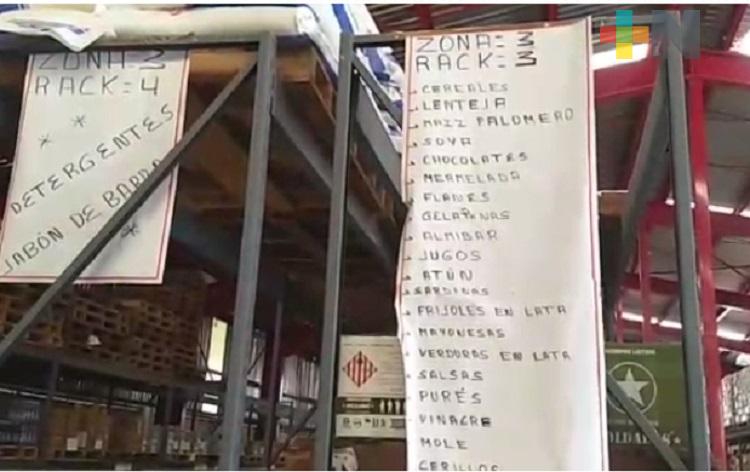 ZONA=3
RACK=4
* *
DETERGENTES
JABÓN DE BARRA
*
ZONA=3
RACK=3
CEREALES
LENTEJA
MAIZ PALOMERO
SOYA
CHOCOLATES
MERMELADA
FLANES
GELATINAS
ALMIBAR
JUGOS
ATÚN
SARDINAS
FRIJOLES EN LATA
MAYONESAS
VERDURAS EN LATA
SALSAS
PURÉS
VINAGRE
MOLE
CERILLOS